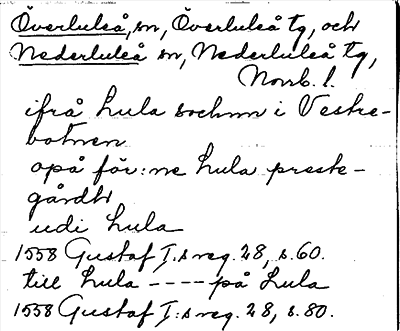 Överluleå, sn, Överluleå tg, och
Nederluleå sn, Nederluleå tg,
Norrb. l.
ifrå Lula sochnn i Vestre-
botnen
opå för:ne Lula preste-
gårdh
udi Lula
1558 Gustaf I.s reg. 28, s. 60.
till Lula - - - - på Lula
1558 Gustaf I:s reg. 28, s. 80.